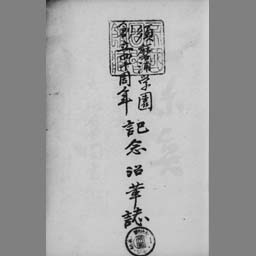 須磨浦栄園
創立四十周年
記念沿革誌